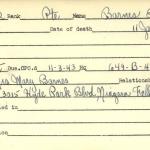 Rank Pte. Name Barnes
Date of death 11 Ja
Due. OPC. a 4-3-43 HQ 649-B-4
Mrs Mary Barnes Relation
Hyde Park Blvd. Niagara Falls
ed in